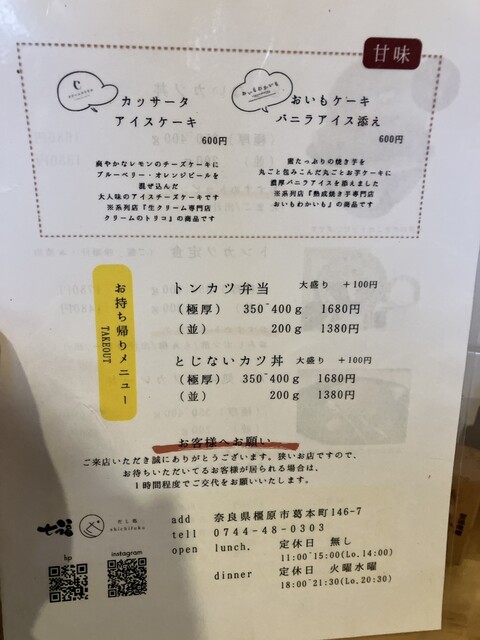 甘味
カッサータ
アイスケーキ
600円
爽やかなレモンのチーズケーキに
ブルーベリー・オレンジピールを
混ぜ込んだ
大人味のアイスチーズケーキです
※系列店『生クリーム専門店
クリームのトリコ』の商品です
おいもケーキ
バニラアイス添え
600円
蜜たっぷりの焼き芋を
丸ごと包みこんだ丸ごとお芋ケーキに
濃厚バニラアイスを添えました
※系列店『熟成焼き芋専門店
おいもわかいも』の商品です
お持ち帰りメニュー
TAKEOUT
トンカツ弁当 大盛り +100円
(極厚) 350~400g 1680円
(並) 200g 1380円
とじないカツ丼 大盛り +100円
(極厚) 350~400g 1680円
(並) 200g 1380円
お客様へお願い
ご来店いただき誠にありがとうございます。狭いお店ですので、
お待ちいただいてるお客様が居られる場合は、
1時間程度でご交代をお願いいたします。
七福
だし蔵
shichifuku
hp
instagram
add 奈良県橿原市葛本町146-7
tell 0744-48-0303
open lunch. 定休日 無し
11:00~15:00(Lo.14:00)
dinner 定休日 火曜水曜
18:00~21:30(Lo.20:30)